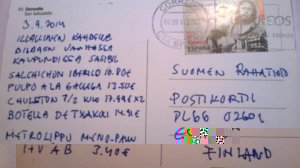 Donostia
San Sebastián
3.9.2014
ILLALLINEN KAHDELLE
BILBAON VANHASSA
KAUPUNGISSA SASIBIL
SALCHICHON IBERICO 10.80€
PULPO A LA GALLEGA 17.50€
CHULETON 1/2 KILO 17.99€ X2
BOTELLA DE TXAKOLI 14.9€
METROLIPPU MENO-PALUU
1+V A B 3.40€
ESPAÑA
CORREOS
SUOMEN RAHATIETO
POSTIKORTTI
PL66 02601
FINLAND